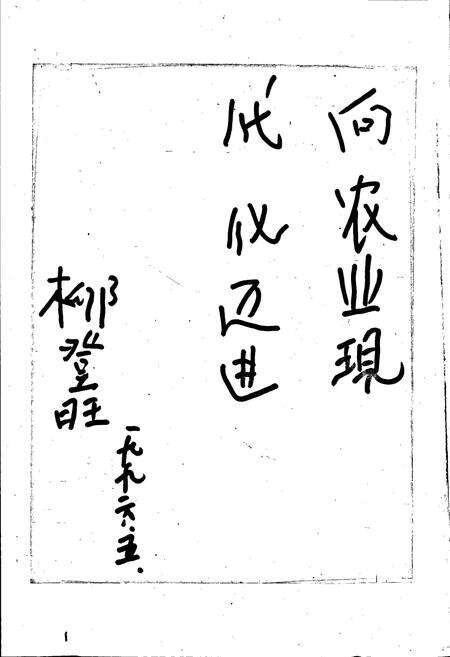 向农业現
代化迈进
柳登旺
一九九六.五.
1